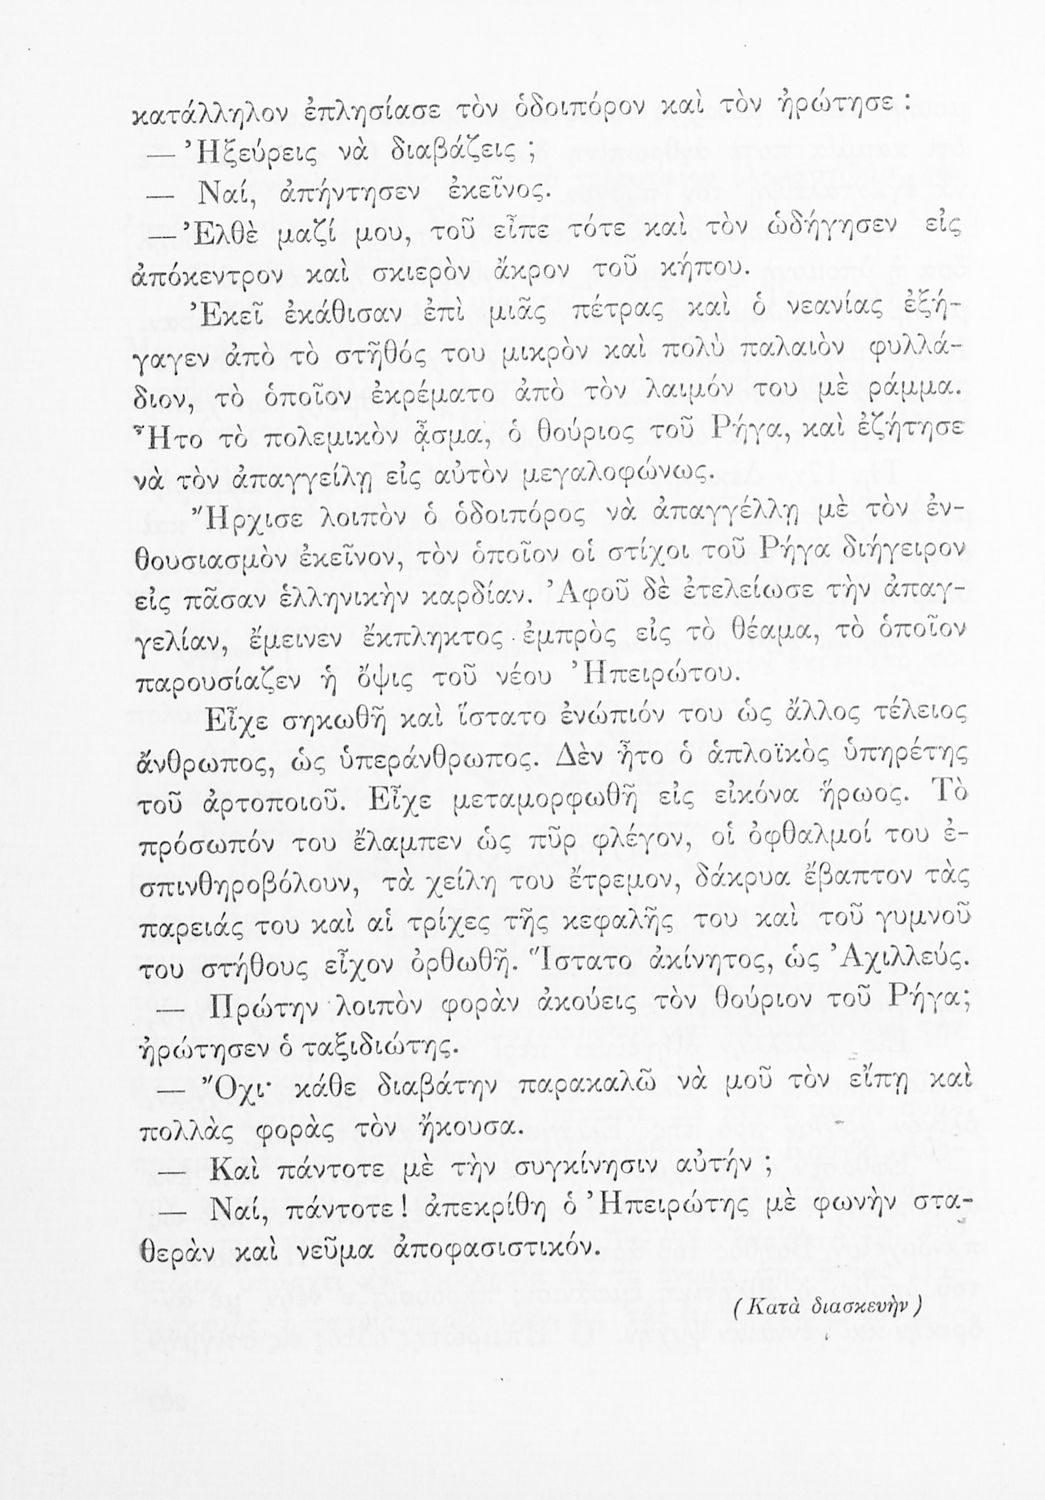 κατάλληλον ἐπλησίασε τὸν ὁδοιπόρον καὶ τὸν ἠρώτησε :
— Ἠξεύρεις νὰ διαβάζεις ;
— Ναί, ἀπήντησεν ἐκεῖνος.
— Ἐλθὲ μαζί μου, τοῦ εἶπε τότε καὶ τὸν ὡδήγησεν εἰς
ἀπόκεντρον καὶ σκιερὸν ἄκρον τοῦ κήπου.
Ἐκεῖ ἐκάθισαν ἐπὶ μιᾶς πέτρας καὶ ὁ νεανίας ἐξή-
γαγεν ἀπὸ τὸ στῆθός του μικρὸν καὶ πολὺ παλαιὸν φυλλά-
διον, τὸ ὁποῖον ἐκρέματο ἀπὸ τὸν λαιμόν του μὲ ράμμα.
Ἦτο τὸ πολεμικὸν ᾆσμα, ὁ θούριος τοῦ Ρήγα, καὶ ἐζήτησε
νὰ τὸν ἀπαγγείλῃ εἰς αὐτὸν μεγαλοφώνως.
Ἤρχισε λοιπὸν ὁ ὁδοιπόρος νὰ ἀπαγγέλλῃ μὲ τὸν ἐν-
θουσιασμὸν ἐκεῖνον, τὸν ὁποῖον οἱ στίχοι τοῦ Ρήγα διήγειρον
εἰς πᾶσαν ἑλληνικὴν καρδίαν. Ἀφοῦ δὲ ἐτελείωσε τὴν ἀπαγ-
γελίαν, ἔμεινεν ἔκπληκτος ἐμπρὸς εἰς τὸ θέαμα, τὸ ὁποῖον
παρουσίαζεν ἡ ὄψις τοῦ νέου Ἠπειρώτου.
Εἶχε σηκωθῆ καὶ ἵστατο ἐνώπιόν του ὡς ἄλλος τέλειος
ἄνθρωπος, ὡς ὑπεράνθρωπος. Δὲν ἦτο ὁ ἁπλοϊκὸς ὑπηρέτης
τοῦ ἀρτοποιοῦ. Εἶχε μεταμορφωθῆ εἰς εἰκόνα ἥρωος. Τὸ
πρόσωπόν του ἔλαμπεν ὡς πῦρ φλέγον, οἱ ὀφθαλμοί του ἐ-
σπινθηροβόλουν, τὰ χείλη του ἔτρεμον, δάκρυα ἔβαπτον τὰς
παρειάς του καὶ αἱ τρίχες τῆς κεφαλῆς του καὶ τοῦ γυμνοῦ
του στήθους εἶχον ὀρθωθῆ. Ἵστατο ἀκίνητος, ὡς Ἀχιλλεύς.
— Πρώτην λοιπὸν φορὰν ἀκούεις τὸν θούριον τοῦ Ρήγα;
ἠρώτησεν ὁ ταξιδιώτης.
— Ὄχι· κάθε διαβάτην παρακαλῶ νὰ μοῦ τὸν εἴπῃ καὶ
πολλὰς φορὰς τὸν ἤκουσα.
— Καὶ πάντοτε μὲ τὴν συγκίνησιν αὐτήν ;
— Ναί, πάντοτε! ἀπεκρίθη ὁ Ἠπειρώτης μὲ φωνὴν στα-
θερὰν καὶ νεῦμα ἀποφασιστικόν.
(Κατὰ διασκευὴν)